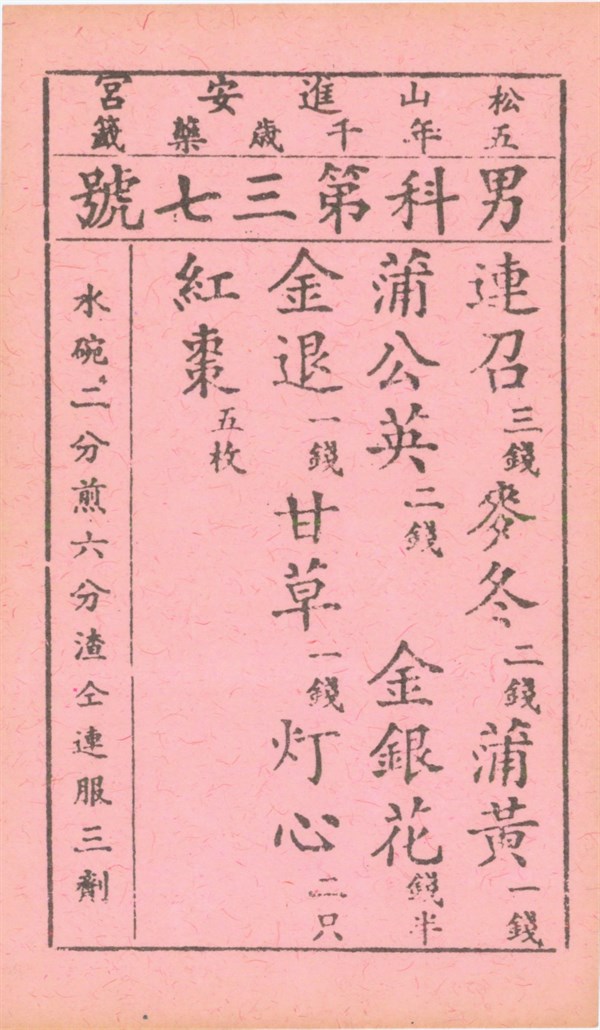 松山進安宮
五年千歲藥籤
男科第三七號
連召三錢麥冬二錢蒲黃一錢
蒲公英二錢 金銀花錢半
金退一錢甘草一錢灯心二只
紅棗五枚
水碗二分煎六分渣仝連服三劑